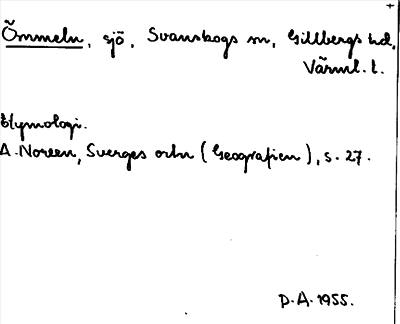 Ömmeln, sjö, Svanskogs sn, Gillbergs hd,
Värml. l.
Etymologi.
A. Noreen, Sverges ortn (Geografien), s. 27.
D.A. 1955.